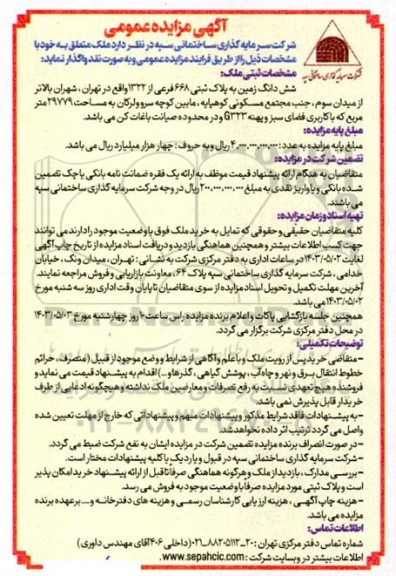 آگهی مزایده عمومی
شرکت سرمایه گذاری ساختمانی سپه در نظر دارد ملک متعلق به خود با
مشخصات ذیل را از طریق فرایند مزایده عمومی و به صورت نقد واگذار نماید:
مشخصات ثبتی ملک:
شش دانگ زمین به پلاک ثبتی ۶۶۸ فرعی از ۱۳۲۲ واقع در تهران، شهران بالاتر
از میدان سوم، جنب مجتمع مسکونی کوهپایه، مابین کوچه سرو و لرگان به مساحت ۲۹۷۷۹ متر
مربع که با کاربری فضای سبز و پهنه G۳۲۳ و در محدوده صیانت باغات کن می باشد.
مبلغ پایه مزایده:
مبلغ پایه مزایده به عدد: ۴،۰۰۰،۰۰۰،۰۰۰،۰۰۰ ریال و به حروف: چهار هزار میلیارد ریال می باشد.
تضمین شرکت در مزایده:
متقاضیان به هنگام ارائه پیشنهاد قیمت موظف به ارائه یک فقره ضمانت نامه بانکی یا چک تضمین
شده بانکی و یا واریز نقدی به مبلغ ۲۰۰،۰۰۰،۰۰۰،۰۰۰ ریال در وجه شرکت سرمایه گذاری ساختمانی سپه
می باشند.
تهیه اسناد و زمان مزایده:
کلیه متقاضیان حقیقی و حقوقی که تمایل به خرید ملک فوق با وضعیت موجود را دارند می توانند
جهت کسب اطلاعات بیشتر و همچنین هماهنگی بازدید و دریافت اسناد مزایده از تاریخ چاپ آگهی
لغایت ۱۴۰۳/۰۵/۰۲ در ساعات اداری به دفتر مرکزی شرکت به نشانی: تهران، میدان ونک، خیابان
خدامی، شرکت سرمایه گذاری ساختمانی سپه پلاک ۶۴، معاونت بازاریابی و فروش مراجعه نمایند.
آخرین مهلت تکمیل و تحویل اسناد مزایده از سوی متقاضیان تا پایان وقت اداری روز سه شنبه مورخ
۱۴۰۳/۰۵/۰۲ می باشد.
همچنین جلسه بازگشایی پاکات و اعلام برنده مزایده راس ساعت ۱۰ روز چهارشنبه مورخ ۱۴۰۳/۰۵/۰۳
در محل دفتر مرکزی شرکت برگزار می گردد.
توضیحات تکمیلی:
- متقاضی خرید پس از رویت ملک و با علم و آگاهی از شرایط و وضع موجود از قبیل (متصرف، حرائم
خطوط انتقال برق و نهر و چاه آب، پوشش گیاهی، گذرها و ...) اقدام به پیشنهاد قیمت می نماید و
فروشنده هیچ تعهدی نسبت به رفع تصرفات و معارضین ملک نداشته و هیچگونه ادعایی از طرف
خریدار قابل پذیرش نمی باشد.
- به پیشنهادات فاقد شرایط مذکور و پیشنهادات مبهم و پیشنهاداتی که خارج از مهلت تعیین شده
واصل می گردد ترتیب اثر داده نخواهد شد.
- در صورت انصراف برنده مزایده تضمین شرکت در مزایده ایشان به نفع شرکت ضبط می گردد.
- شرکت سرمایه گذاری ساختمانی سپه در قبول و یا رد یک یا کلیه پیشنهادات مختار است.
- بررسی مدارک، بازدید از ملک و هرگونه هماهنگی صرفا تا قبل از ارائه پیشنهاد خرید امکان پذیر
است و پلاک ثبتی مورد مزایده صرفا با وضعیت موجود به فروش می رسد.
- هزینه چاپ آگهی، هزینه ارزیابی کارشناسان رسمی و هزینه های دفترخانه و ... بر عهده برنده
مزایده می باشد.
اطلاعات تماس:
شماره تماس دفتر مرکزی تهران: ۲۰-۸۸۲۰۵۱۱۲-۰۲۱ (داخلی ۴۰۶ آقای مهندس داوری)
اطلاعات بیشتر در وبسایت شرکت: www.sepahcic.com